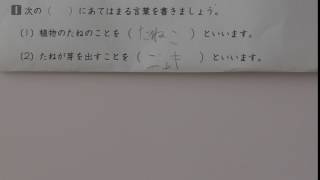 1 次の( )にあてはまる言葉を書きましょう。
(1) 植物のたねのことを( たねこ )といいます。
(2) たねが芽を出すことを( )といいます。